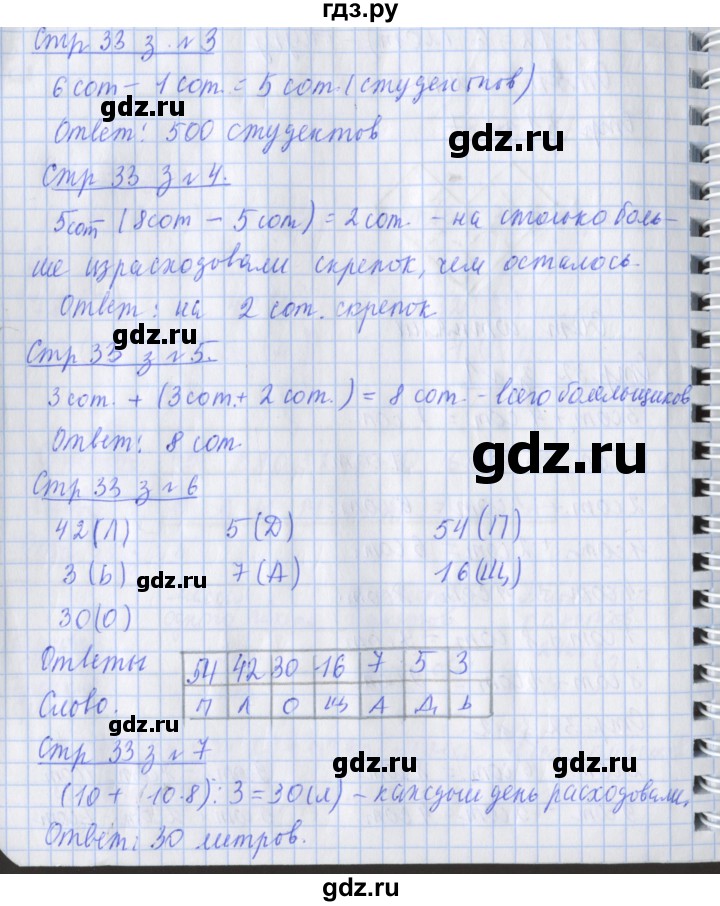 гдз.ру
Стр 33 з. №3
6 сот – 1 сот. = 5 сот. (студентов)
gdz.ru
gdz.ru
Ответ: 500 студентов
Стр 33 з №4.
5 сот – (8 сот – 5 сот) = 2 сот. – на столько боль-
ше израсходовали скрепок, чем осталось.
Ответ: на 2 сот. скрепок
gdz.ru
Стр 33 з №5.
3 сот. + (3 сот. + 2 сот.) = 8 сот. – всего болельщиков
Ответ: 8 сот.
gdz.ru
Стр 33 з №6
42 (Л) 5 (Д) 54 (П)
3 (Ь) 7 (А) 16 (Щ)
gdz.ru
30 (О)
Ответы 54 42 30 16 7 5 3
Слово. П Л О Щ А Д Ь
gdz.ru
Стр 33 з №7
gdz.ru
gdz.ru
(10 + 10·8) : 3 = 30 (л) – каждый день расходовали,
Ответ: 30 литров.
gdz.ru